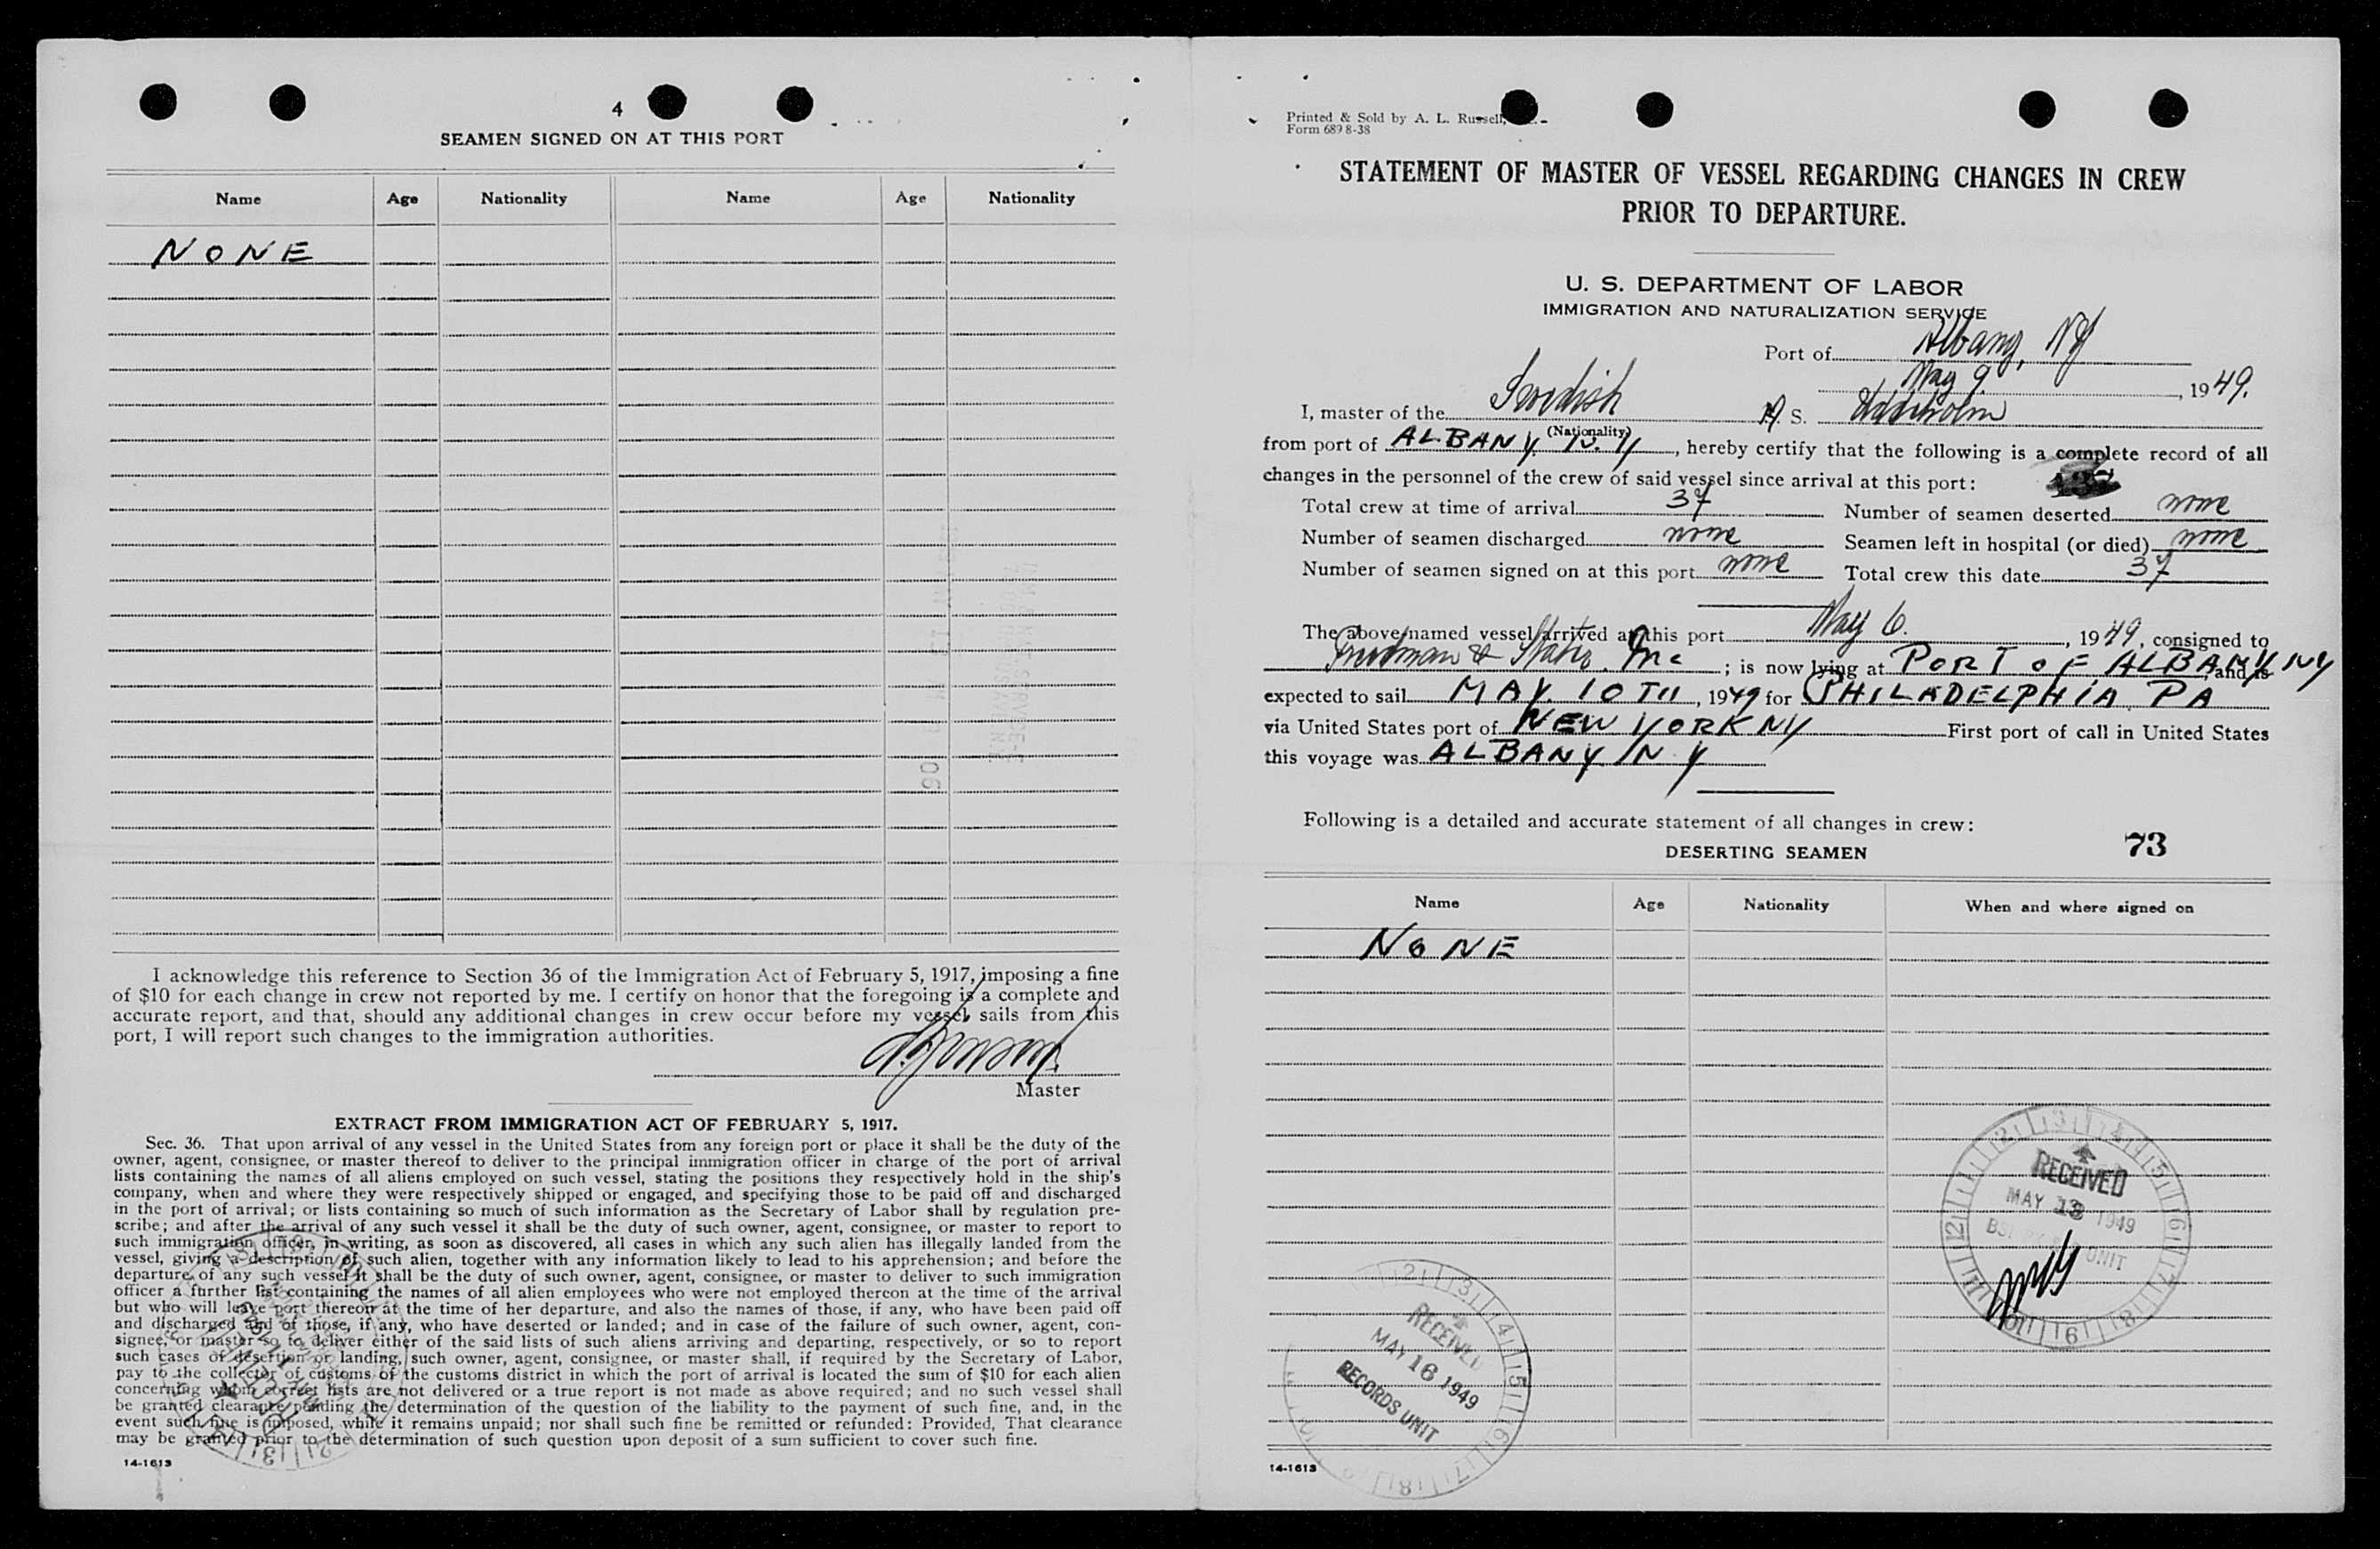 4
SEAMEN SIGNED ON AT THIS PORT
Name Age Nationality Name Age Nationality
NONE
I acknowledge this reference to Section 36 of the Immigration Act of February 5, 1917, imposing a fine
of $10 for each change in crew not reported by me. I certify on honor that the foregoing is a complete and
accurate report, and that, should any additional changes in crew occur before my vessel sails from this
port, I will report such changes to the immigration authorities.
Master
EXTRACT FROM IMMIGRATION ACT OF FEBRUARY 5, 1917.
Sec. 36. That upon arrival of any vessel in the United States from any foreign port or place it shall be the duty of the
owner, agent, consignee, or master thereof to deliver to the principal immigration officer in charge of the port of arrival
lists containing the names of all aliens employed on such vessel, stating the positions they respectively hold in the ship's
company, when and where they were respectively shipped or engaged, and specifying those to be paid off and discharged
in the port of arrival; or lists containing so much of such information as the Secretary of Labor shall by regulation pre-
scribe; and after the arrival of any such vessel it shall be the duty of such owner, agent, consignee, or master to report to
such immigration officer, in writing, as soon as discovered, all cases in which any such alien has illegally landed from the
vessel, giving a description of such alien, together with any information likely to lead to his apprehension; and before the
departure of any such vessel it shall be the duty of such owner, agent, consignee, or master to deliver to such immigration
officer a further list containing the names of all alien employees who were not employed thereon at the time of the arrival
but who will leave port thereon at the time of her departure, and also the names of those, if any, who have been paid off
and discharged and of those, if any, who have deserted or landed; and in case of the failure of such owner, agent, con-
signee, or master so to deliver either of the said lists of such aliens arriving and departing, respectively, or so to report
such cases of desertion or landing, such owner, agent, consignee, or master shall, if required by the Secretary of Labor,
pay to the collector of customs of the customs district in which the port of arrival is located the sum of $10 for each alien
concerning whom correct lists are not delivered or a true report is not made as above required; and no such vessel shall
be granted clearance pending the determination of the question of the liability to the payment of such fine, and, in the
event such fine is imposed, while it remains unpaid; nor shall such fine be remitted or refunded: Provided, That clearance
may be granted prior to the determination of such question upon deposit of a sum sufficient to cover such fine.
14-1613
Printed & Sold by A. L. Russell,
Form 689 8-38
STATEMENT OF MASTER OF VESSEL REGARDING CHANGES IN CREW
PRIOR TO DEPARTURE.
U. S. DEPARTMENT OF LABOR
IMMIGRATION AND NATURALIZATION SERVICE
Port of Albany, NY
May 9, 1949.
I, master of the Swedish S.
(Nationality)
from port of ALBANY N.Y, hereby certify that the following is a complete record of all
changes in the personnel of the crew of said vessel since arrival at this port:
Total crew at time of arrival 37 Number of seamen deserted none
Number of seamen discharged none Seamen left in hospital (or died) none
Number of seamen signed on at this port none Total crew this date 37
The above named vessel arrived at this port May 6, 1949, consigned to
& Inc; is now lying at PORT OF ALBANY NY, and is
expected to sail MAY 10TH, 1949 for PHILADELPHIA PA
via United States port of NEW YORK NY First port of call in United States
this voyage was ALBANY N Y
Following is a detailed and accurate statement of all changes in crew:
DESERTING SEAMEN 73
Name Age Nationality When and where signed on
NONE
RECEIVED
MAY 13 1949
UNIT
RECEIVED
MAY 16 1949
RECORDS UNIT
14-1613